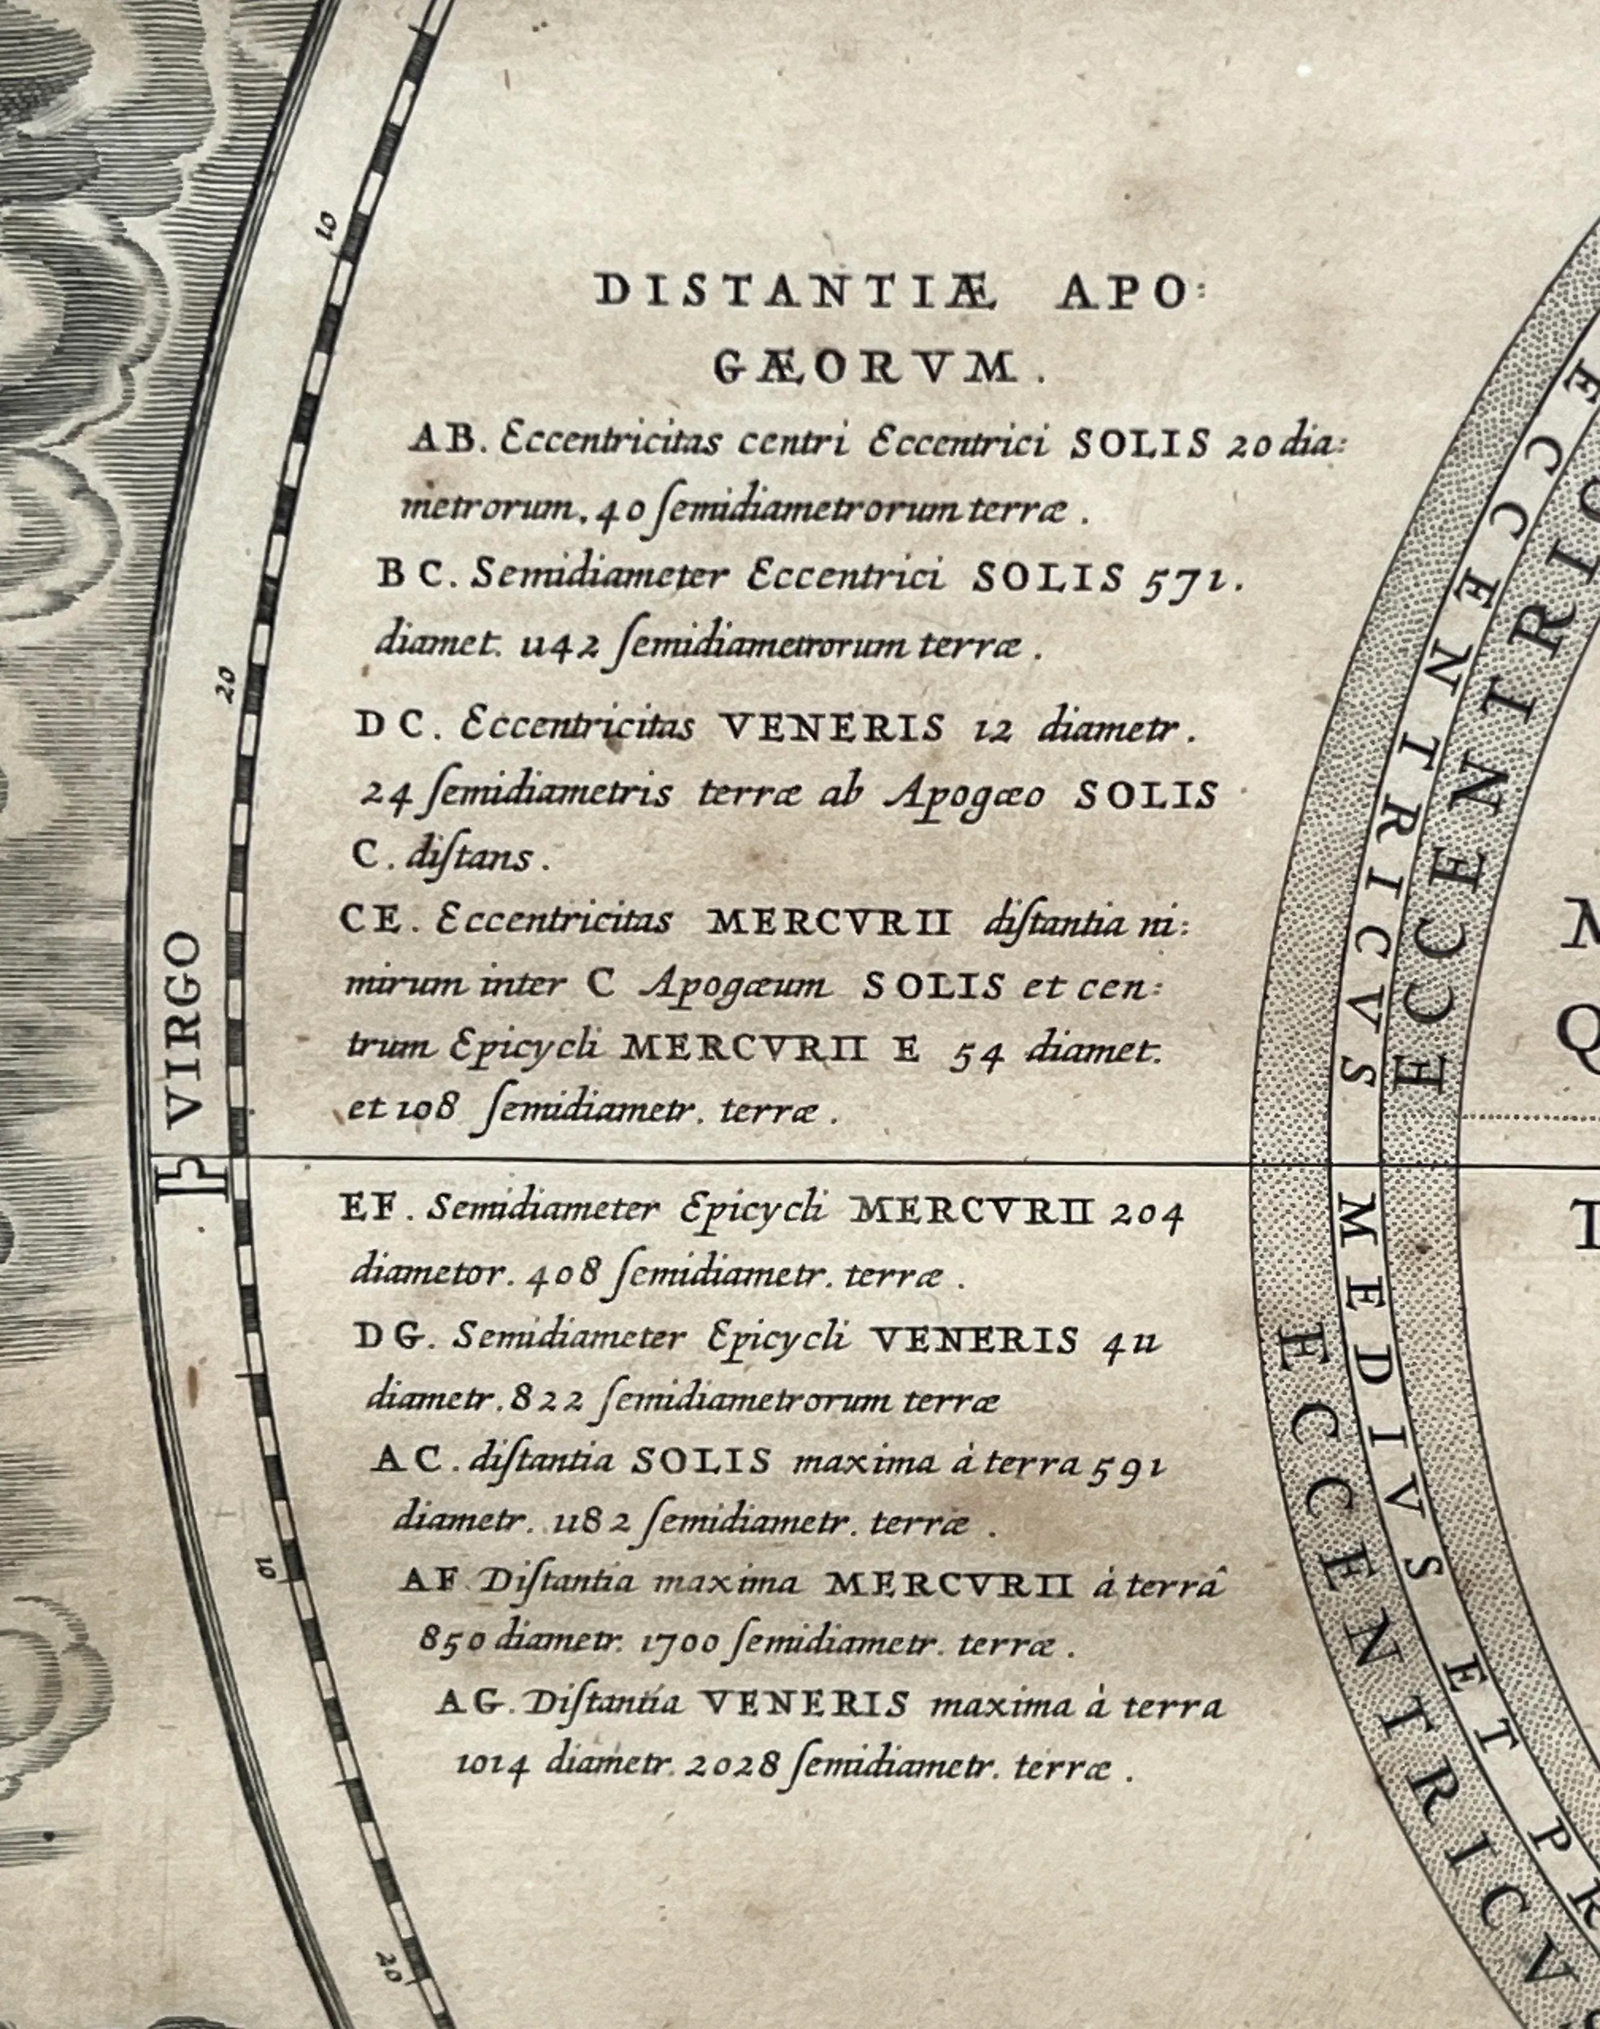 DISTANTIÆ APO:
GÆORVM.
AB. Eccentricitas centri Eccentrici SOLIS 20 dia:
metrorum, 40 ſemidiametrorum terræ.
BC. Semidiameter Eccentrici SOLIS 571.
diamet. 1142 ſemidiametrorum terræ.
DC. Eccentricitas VENERIS 12 diametr.
24 ſemidiametris terræ ab Apogæo SOLIS
C. diſtans.
CE. Eccentricitas MERCVRII diſtantia ni:
mirum inter C Apogæum SOLIS et cen:
trum Epicycli MERCVRII E 54 diamet.
et 108 ſemidiametr. terræ.
EF. Semidiameter Epicycli MERCVRII 204
diametor. 408 ſemidiametr. terræ.
DG. Semidiameter Epicycli VENERIS 411
diametr. 822 ſemidiametrorum terræ
AC. diſtantia SOLIS maxima à terra 591
diametr. 1182 ſemidiametr. terræ.
AF. Diſtantia maxima MERCVRII á terrâ
850 diametr. 1700 ſemidiametr. terræ.
AG. Diſtantia VENERIS maxima à terra
1014 diametr. 2028 ſemidiametr. terræ.
10
20
VIRGO
10
20
ECCENTRICVS MEDIVS ET
ECCENTRIC
ECCENTRICV